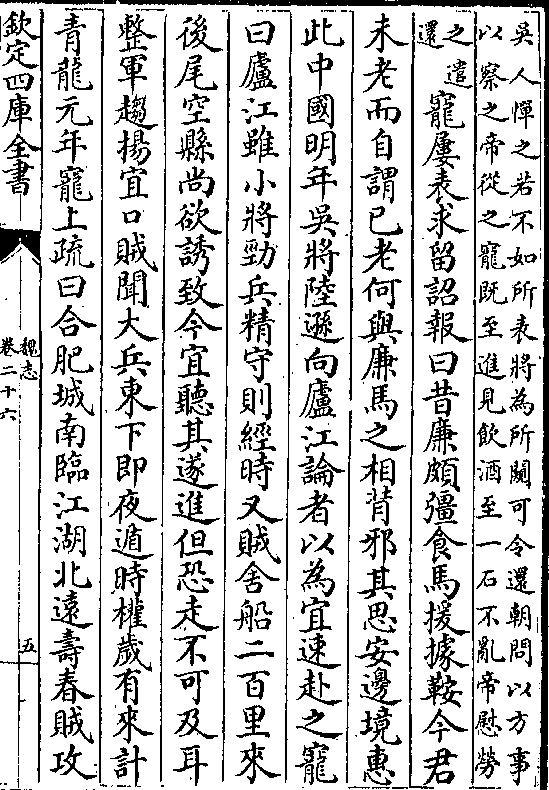 吳人憚之若不如所表將為所闚可令還朝問以方事
以察之帝從之寵既至進見飲酒至一石不亂帝慰勞
之遣
還
寵屢表求留詔報曰昔廉頗彊食馬援據鞍今君
未老而自謂已老何與廉馬之相背邪其思安邊境惠
此中國明年吳將陸遜向廬江論者以為宜速赴之寵
曰廬江雖小將勁兵精守則經時又賊舍船二百里來
後尾空縣尚欲誘致今宜聽其遂進但恐走不可及耳
整軍趨揚宜口賊聞大兵東下即夜遁時權歲有來計
青龍元年寵上疏曰合肥城南臨江湖北遠壽春賊攻
欽定四庫全書
魏志
卷二十六
五